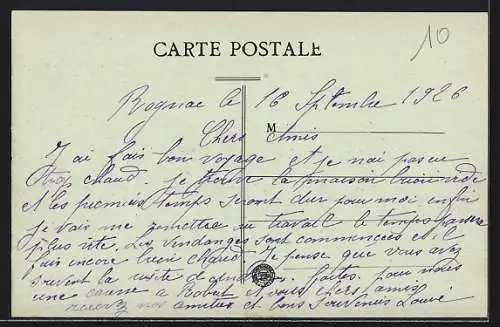 10
CARTE POSTALE
Rognac le 16 Septembre 1926
M
Chers Amis
J'ai fais bon voyage et je n'ai pas eu
trop chaud. Je trouve la maison bien vide
et les premiers temps seront dur pour moi, enfin
je vais me remettre au travail le temps passera
plus vite. Les vendanges sont commencées et il
fais encore bien chaud. Je pense que vous avez
souvent la visite de faites pour nous
une caresse a Robert et vous chers amis
recevez nos amities et bons souvenirs Louve